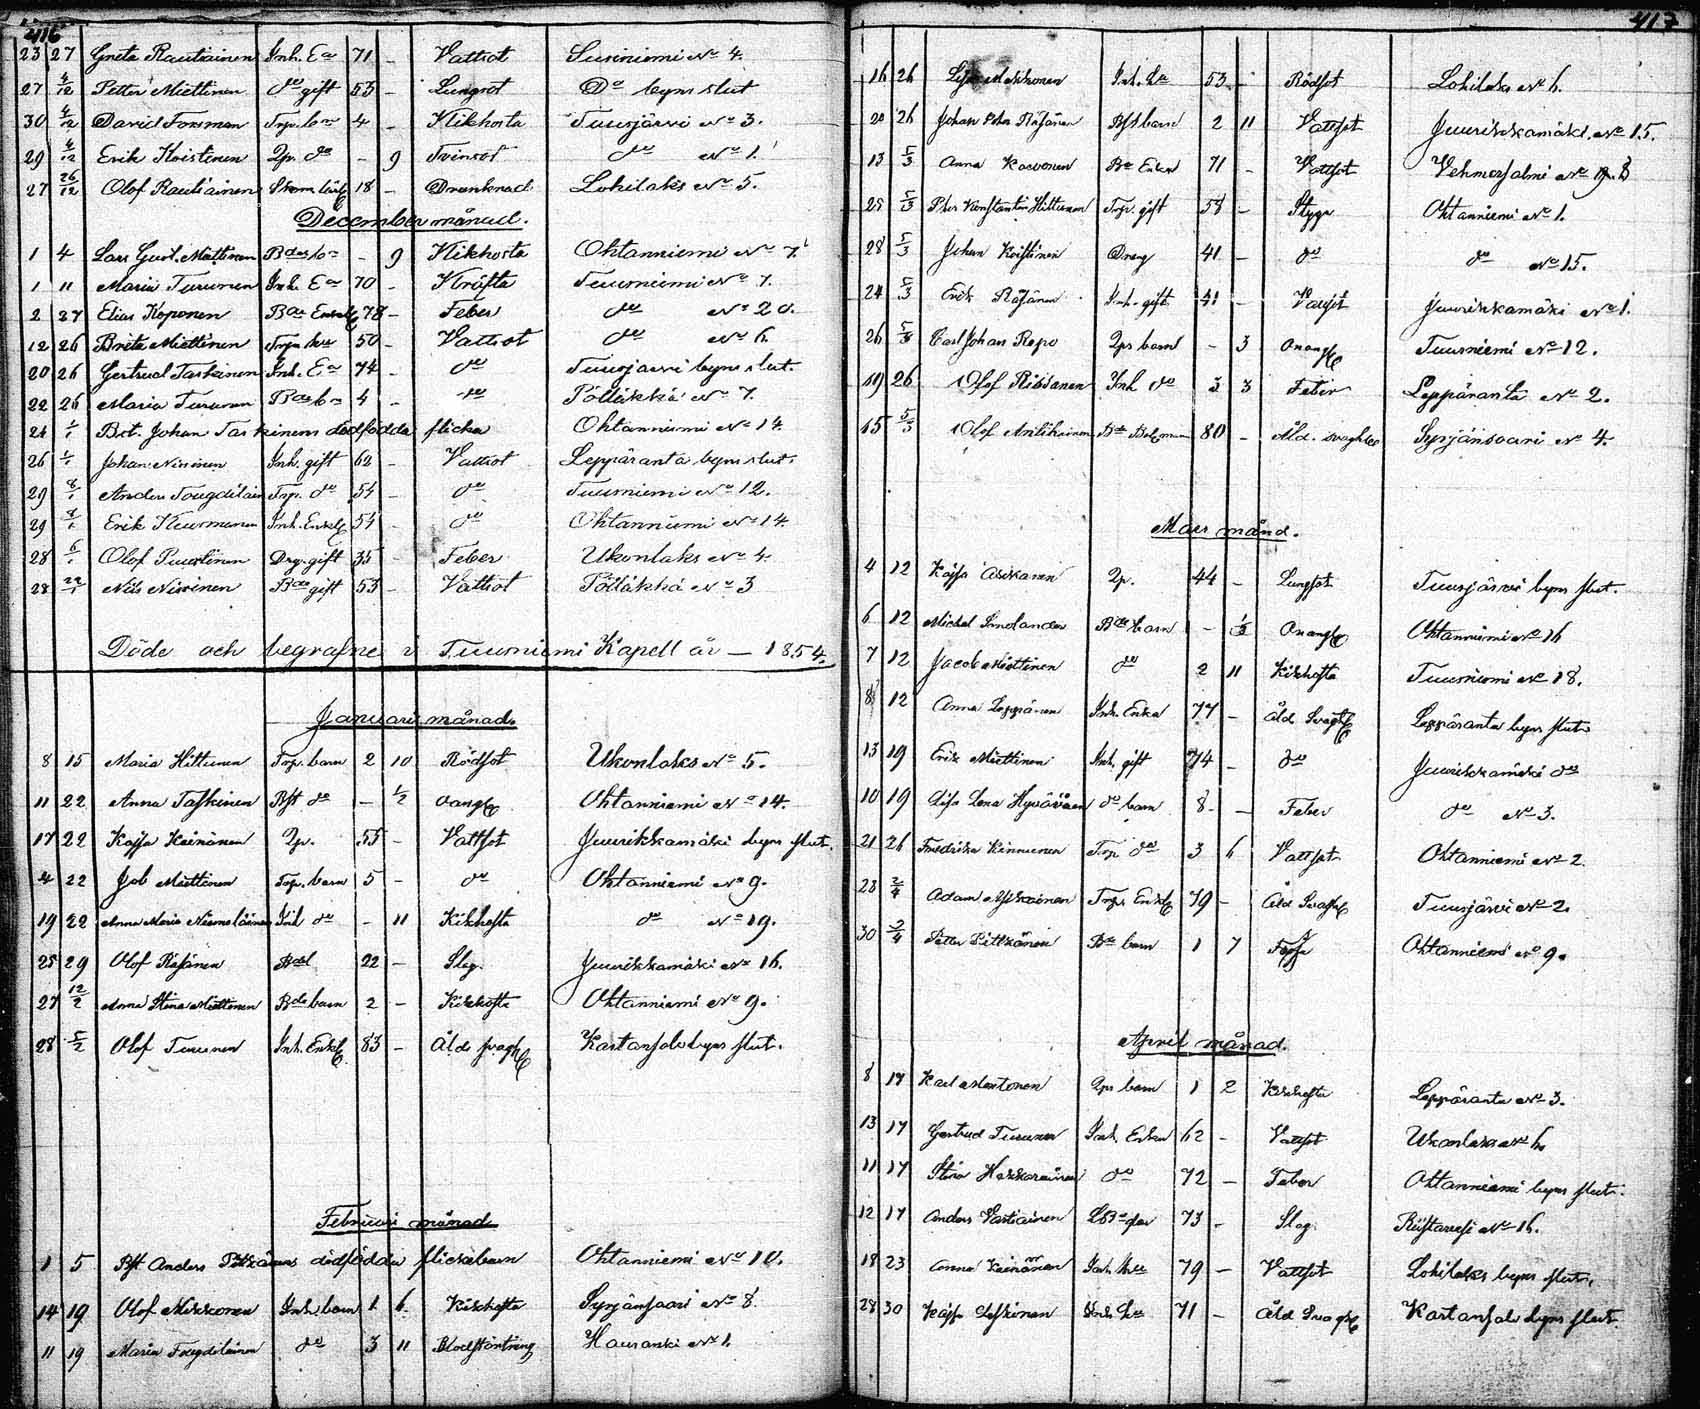 416
23 27 Greta Rautiainen Inh. Ea 71 - Vattsot Susiniemi No 4.
27 4/12 Petter Miettinen do gift 53 - Lungsot Do byns slut
30 4/12 David Forsman Trp. bn 4 - Kikhosta Tuusjärvi No 3.
29 4/12 Erik Koistinen Qp. do - 9 Tvinsot do No 1.
27 26/12 Olof Rautiainen 18 - Drunknad Lohilaks No 5.
December månad.
1 4 Lars Gust. Miettinen Bdes bn - 9 Kikhosta Ohtanniemi No 7.
1 11 Maria Turunen Inh. Ea 70 - Kräfta Tuusniemi No 7.
2 27 Elias Koponen Bde Enkl 78 - Feber do No 20.
12 26 Brita Miettinen Trps hu 50 - Vattsot do No 6.
20 26 Gertrud Taskinen Inh. Ea 74 - do Tuusjärvi byns slut.
22 26 Maria Turunen Bdes bn 4 - do Pölläkkä No 7.
24 1/1 Bst. Johan Taskinens dödfödda flicka Ohtanniemi No 14.
26 1/1 Johan Nissinen Inh. gift 62 - Vattsot Leppäranta byns slut.
29 8/1 Anders Tougdilain Trp. do 54 - do Tuusniemi No 12.
29 8/1 Erik Kuosmanen Inh. Enkl 54 - do Ohtanniemi No 14.
28 6/1 Olof Puustinen Drg. gift 35 - Feber Ukonlaks No 4.
28 22/1 Nils Nissinen Bde gift 53 - Vattsot Pölläkkä No 3
Döde och begrafne i Tuusniemi Kapell år - 1854.
Januari månad.
8 15 Maria Hiltunen Trp. barn 2 10 Rödsot Ukonlaks No 5.
11 22 Anna Taskinen Bst do - 1/2 oangl Ohtanniemi No 14.
17 22 Kajsa Keinänen Qp. 55 - Vattsot Juurikkamäki byns slut.
4 22 Job Miettinen Trp. barn 5 - do Ohtanniemi No 9.
19 22 Anna Maria Niemeläinen Inh do - 11 Kikhosta do No 19.
25 29 Olof Räsänen 22 - Slag. Juurikkamäki No 16.
27 12/2 Anna Stina Miettinen Bde barn 2 - Kikhosta Ohtanniemi No 9.
28 5/2 Olof Turunen Inh. Enkl 83 - Åld. svaghet Kartansalo byns slut.
Februari månad
1 5 Bst Anders Pitkänens dödfödda flickebarn Ohtanniemi No 10.
14 19 Olof Mikkonen Inh barn 1 6 Kikhosta Syrjänsaari No 8.
11 19 Maria Tougdilainen do 3 11 Blodstörtning Hausanki No 1.
417
16 26 Mikkonen Inh. hu 53 - Rödsot Lohilaks No 6.
20 26 Johan Räsänen Bst barn 2 11 Vattsot Juurikkamäki No 15.
13 5/3 Anna Korhonen Bde Enka 71 - Vattsot Vehmersalmi No
25 5/3 Pher Konstantin Hiltunen Trp. gift 58 - Stygn Ohtanniemi No 1.
28 5/3 Johan Koistinen Dreng 41 - do do No 15.
24 5/3 Erik Räsänen Inh. gift 41 - Vattsot Juurikkamäki No 1.
26 5/3 Carl Johan Repo Qps barn - 3 Onangl Tuusniemi No 12.
19 26 Olof Riissanen Inh do 3 3 Feber Leppäranta No 2.
15 5/3 Olof Antikainen 80 - Åld. svaghet Syrjänsaari No 4.
Mars månd.
4 12 Kajsa Asikanen Qp. 44 - Lungsot Tuusjärvi byns slut.
6 12 Michel Smolander Bde barn - 1/2 Onangl Ohtanniemi No 16
7 12 Jacob Miettinen do 2 11 Kikhosta Tuusniemi No 18.
8 12 Anna Leppänen Inh. Enka 77 - Åld Svaght Leppäranta byns slut.
13 19 Erik Miettinen Inh. gift 74 - do Juurikkamäki do
10 19 Lisa Lena Hyvärinen do barn 8 - Feber do No 3.
21 26 Fredrika Kinnunen Trp do 3 6 Vattsot Ohtanniemi No 2
23 2/4 Adam Asikainen Trps Enkl 79 - Åld Svaght Tuusjärvi No 2.
30 2/4 Petter Pitkänen Bde barn 1 7 Ohtanniemi No 9.
April månad.
8 17 Karl Mertonen Qps barn 1 2 Kikhosta Leppäranta No 3.
13 17 Gertrud Turunen Inh. Enka 62 - Vattsot Ukonlaks No 6.
11 17 Stina Hakkarainen do 72 - Feber Ohtanniemi byns slut.
12 17 Anders Vartiainen 73 - Slag. Riistavesi No 16.
18 23 Anna Keinänen Inh. hu 79 - Vattsot Lohilaks byns slut.
28 30 Kajsa Leskinen Inh. hu 71 - Åld Svaght Kartansalo byns slut.